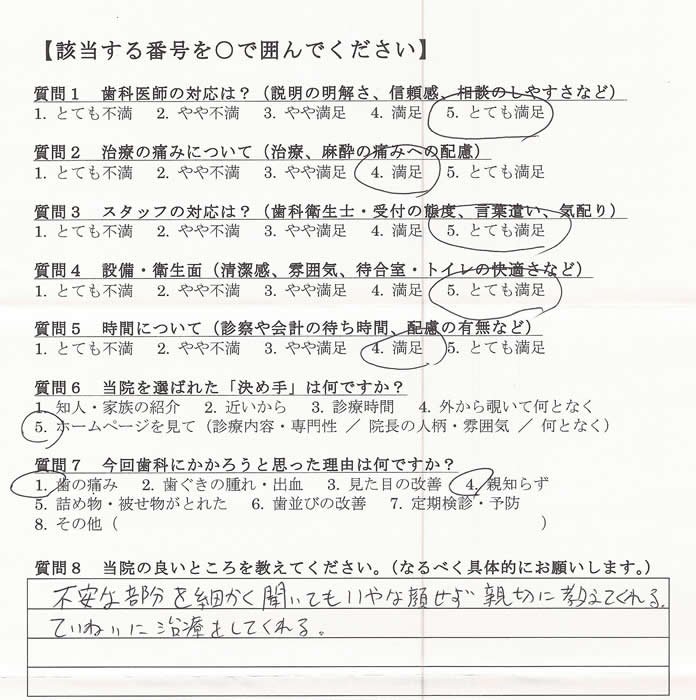 【該当する番号を〇で囲んでください】
質問1 歯科医師の対応は？（説明の明解さ、信頼感、相談のしやすさなど）
1. とても不満 2. やや不満 3. やや満足 4. 満足 5. とても満足
質問2 治療の痛みについて（治療、麻酔の痛みへの配慮）
1. とても不満 2. やや不満 3. やや満足 4. 満足 5. とても満足
質問3 スタッフの対応は？（歯科衛生士・受付の態度、言葉遣い、気配り）
1. とても不満 2. やや不満 3. やや満足 4. 満足 5. とても満足
質問4 設備・衛生面（清潔感、雰囲気、待合室・トイレの快適さなど）
1. とても不満 2. やや不満 3. やや満足 4. 満足 5. とても満足
質問5 時間について（診察や会計の待ち時間、配慮の有無など）
1. とても不満 2. やや不満 3. やや満足 4. 満足 5. とても満足
質問6 当院を選ばれた「決め手」は何ですか？
1. 知人・家族の紹介 2. 近いから 3. 診療時間 4. 外から覗いて何となく
5. ホームページを見て（診療内容・専門性 ／ 院長の人柄・雰囲気 ／ 何となく）
質問7 今回歯科にかかろうと思った理由は何ですか？
1. 歯の痛み 2. 歯ぐきの腫れ・出血 3. 見た目の改善 4. 親知らず
5. 詰め物・被せ物がとれた 6. 歯並びの改善 7. 定期検診・予防
8. その他（ ）
質問8 当院の良いところを教えてください。（なるべく具体的にお願いします。）
不安な部分を細かく聞いてもいやな顔せず親切に教えてくれる。
ていねいに治療をしてくれる。